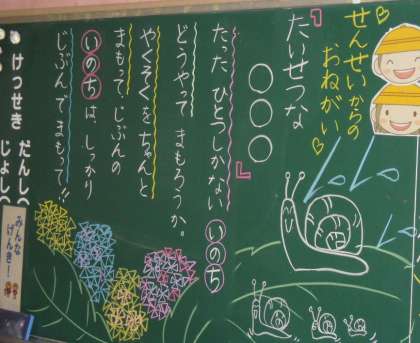 せんせいからの
おねがい
『たいせつな
○○○
たった ひとつしかない いのち』
どうやって まもろうか。
やくそくを ちゃんと
まもって、じぶんの
いのち は しっかり
じぶんでまもって!!
けっせき だんし(
じょし(
みんな
げんき!